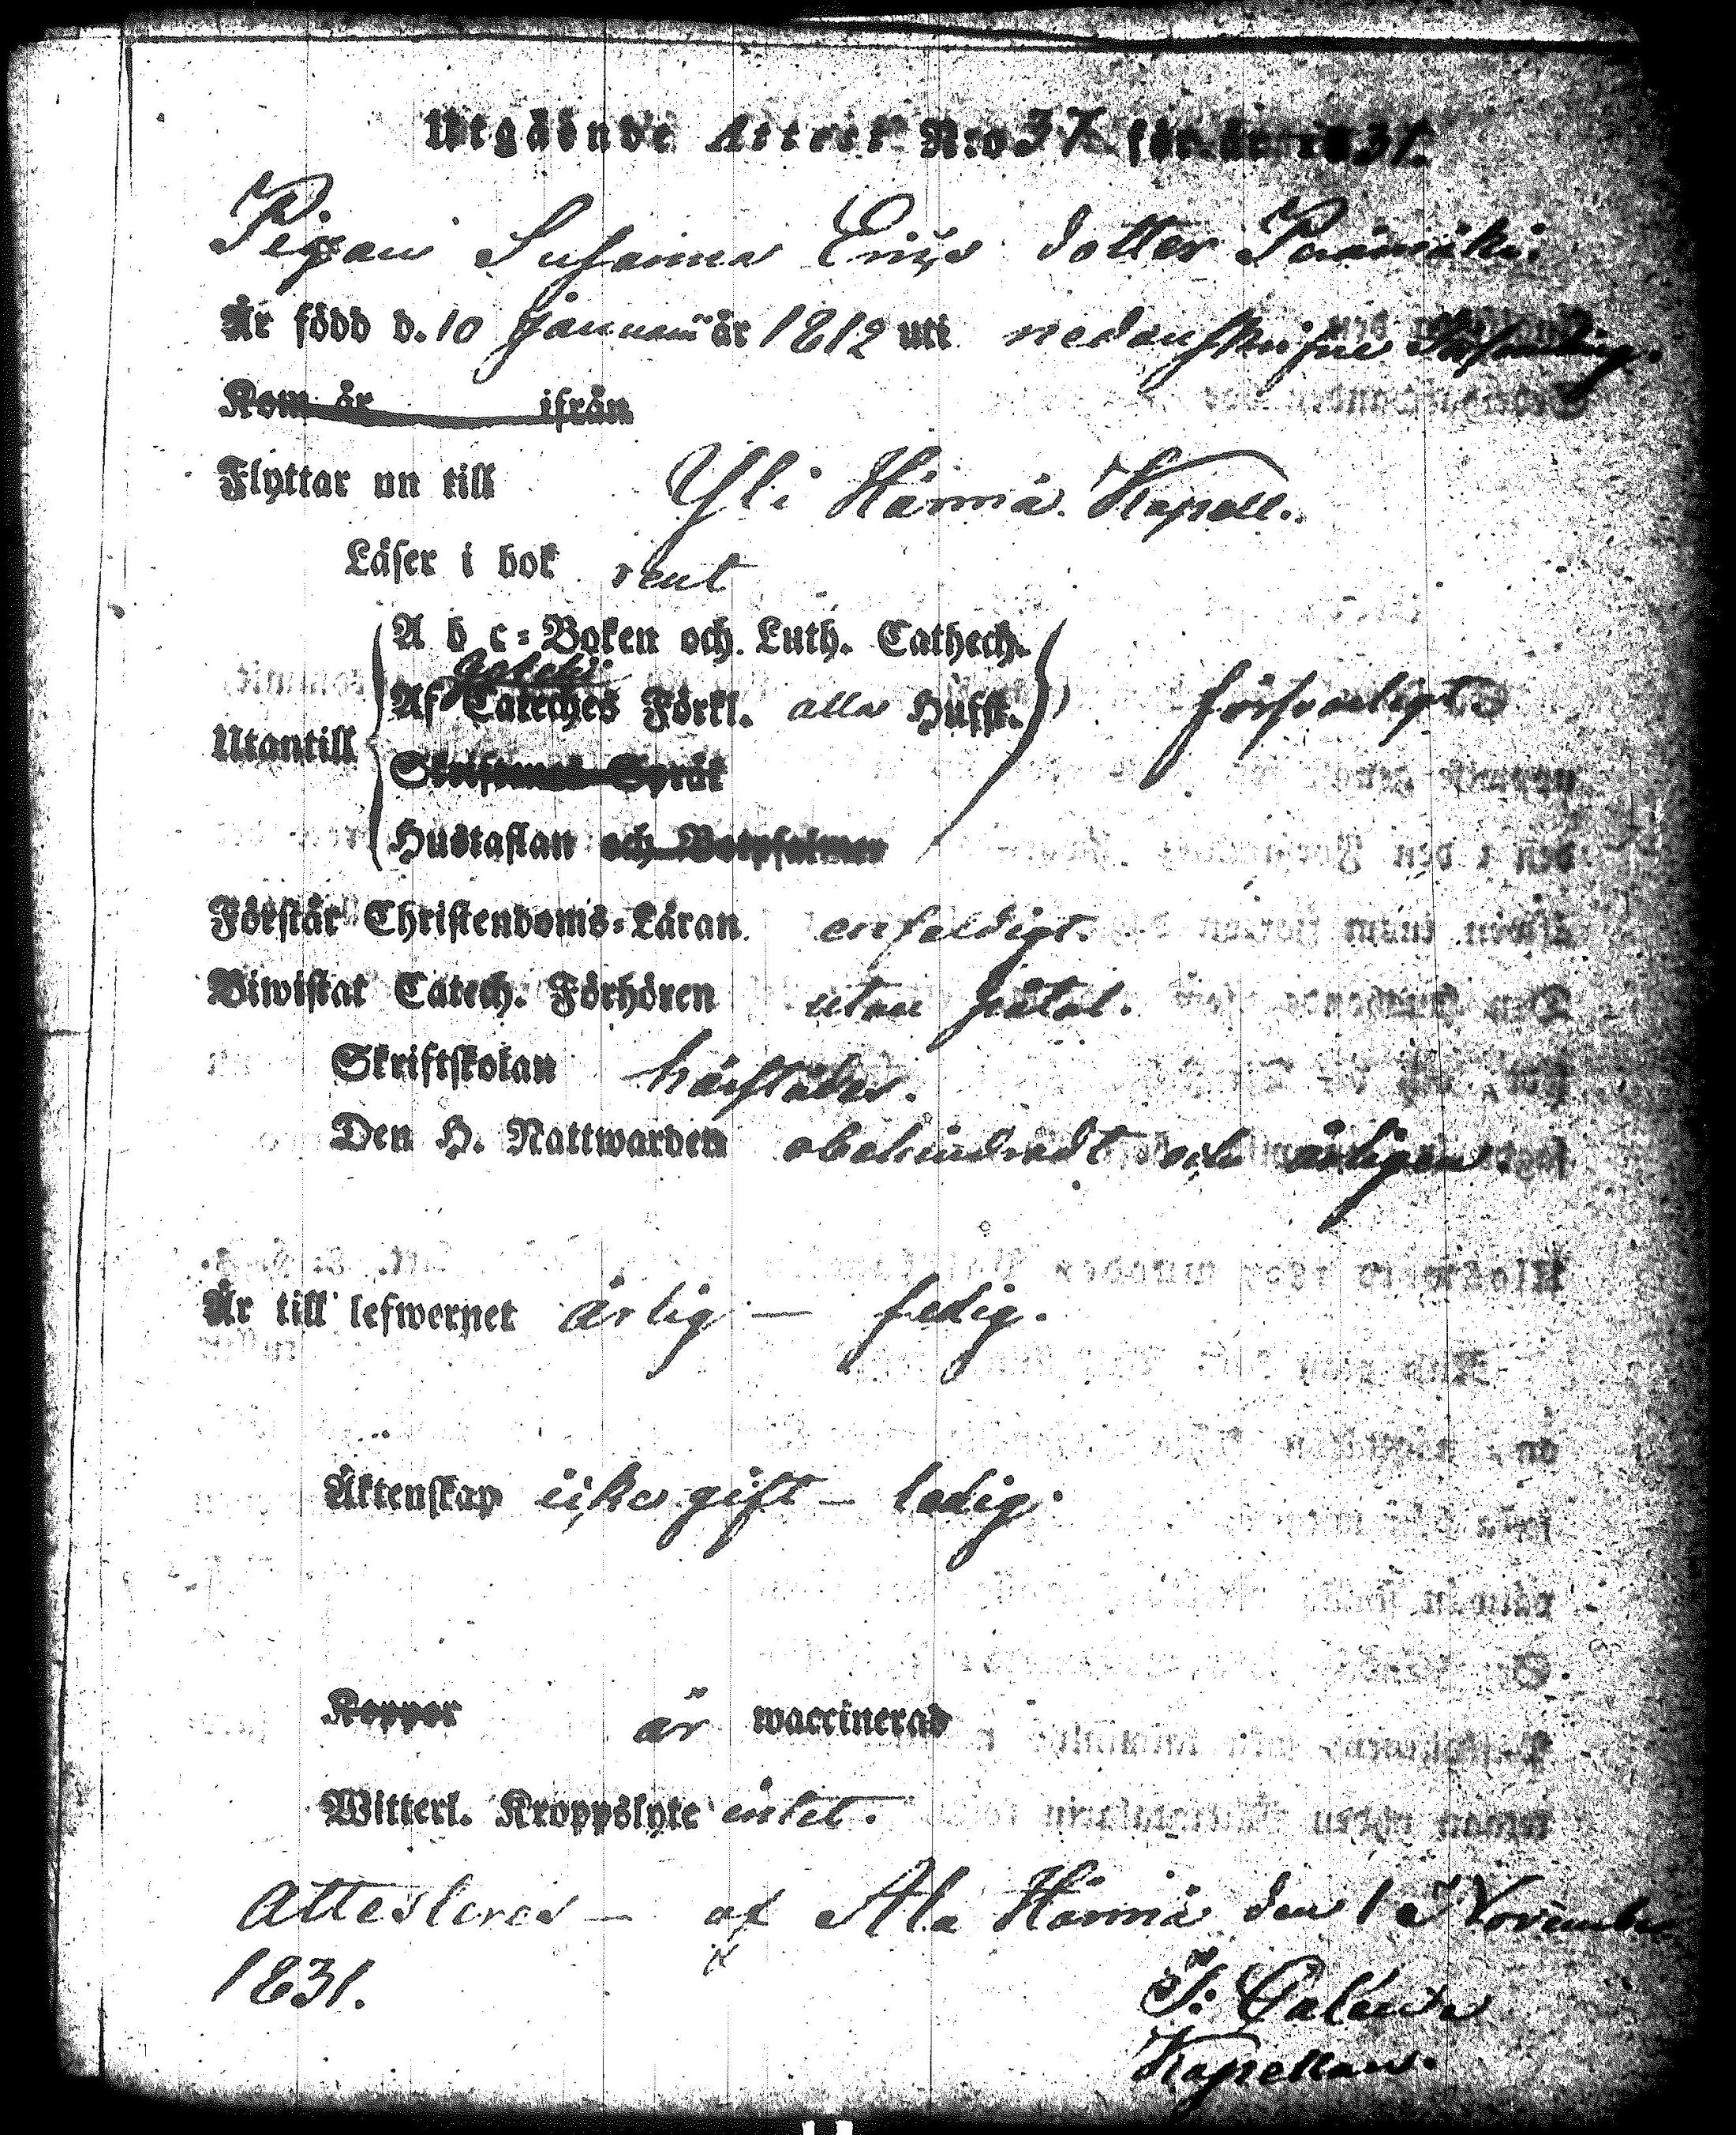 Utgående Attest N:o 37 för år 1831.
Pigan Susanna Eriks dotter
Är född d. 10 Januari år 1812 uti nedanskrifne Församling.
Kom år ifrån
Flyttar nu till Yli Härmä Kapell.
Läser i bok rent
A b c-Boken och Luth. Cathech.
Af Cateches Förkl. alla Hufst. försvarligt
Utantill
Skriftenes Språk
Hustaflan och Botpsalmer
Förstår Christendoms-Läran enfeldigt.
Biwistat Catech. Förhören utan
Skriftskolan härstädes.
Den H. Nattwarden obehindradt och årligen
Är till lefwernet ärlig — fredig.
Äktenskap icke gift — ledig.
Koppor är waccinerad
Witterl. Kroppslyte intet.
Attesteras — af Ala Härmä den 1 November
1831.
Kapellan.